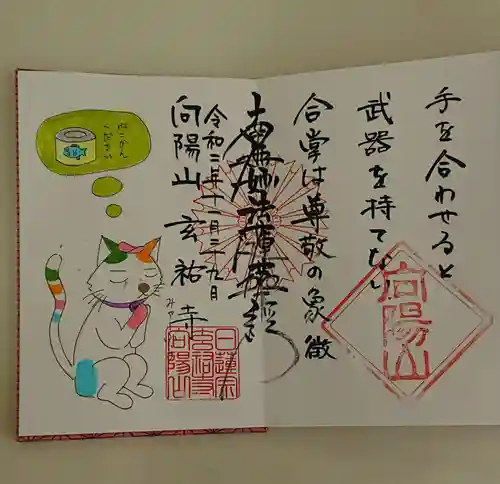 手を合わせると
武器を持てない
合掌は尊敬の象徴
南無妙法蓮華経
令和二年十一月二十九日
向陽山玄祐寺
ねこかん
ください
向陽山
日蓮宗
玄祐寺
向陽山